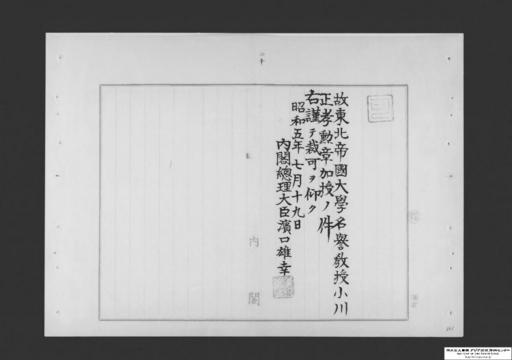 故東北帝國大學名譽教授小川
正孝勲章加授ノ件
右謹テ裁可ヲ仰ク
昭和五年七月十九日
內閣總理大臣濱口雄幸
內閣